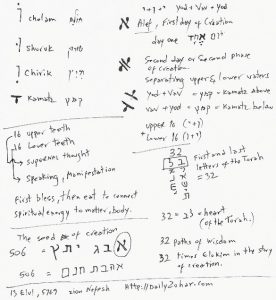 Cholam חולם
Shuruk שורק
Chirik חיריק
Kamatz קמץ
16 upper teeth
16 Lower teeth
Supernal thought
Speaking, Manifestation
First bless, then eat to connect
spiritual energy to matter, body.
The seed of creation
506 = אבג יתץ
506 = אהבת חנם
13 Elul, 5769 Zion Nefesh
yod + Vav + yod
Alef, First day of Creation
day one יום אחד
Second day or Second phase
of creation.
Separating upper & lower waters
yod + Vav = Kamatz above
vav + yod = Kamatz below
upper 16 (י+ו)
Lower 16 (ו+י)
32
First and last
letters of the Torah
= 32
32 = לב = heart
(of the Torah.)
32 paths of wisdom
32 times Elokim in the story
of creation.
http://DailyZohar.com